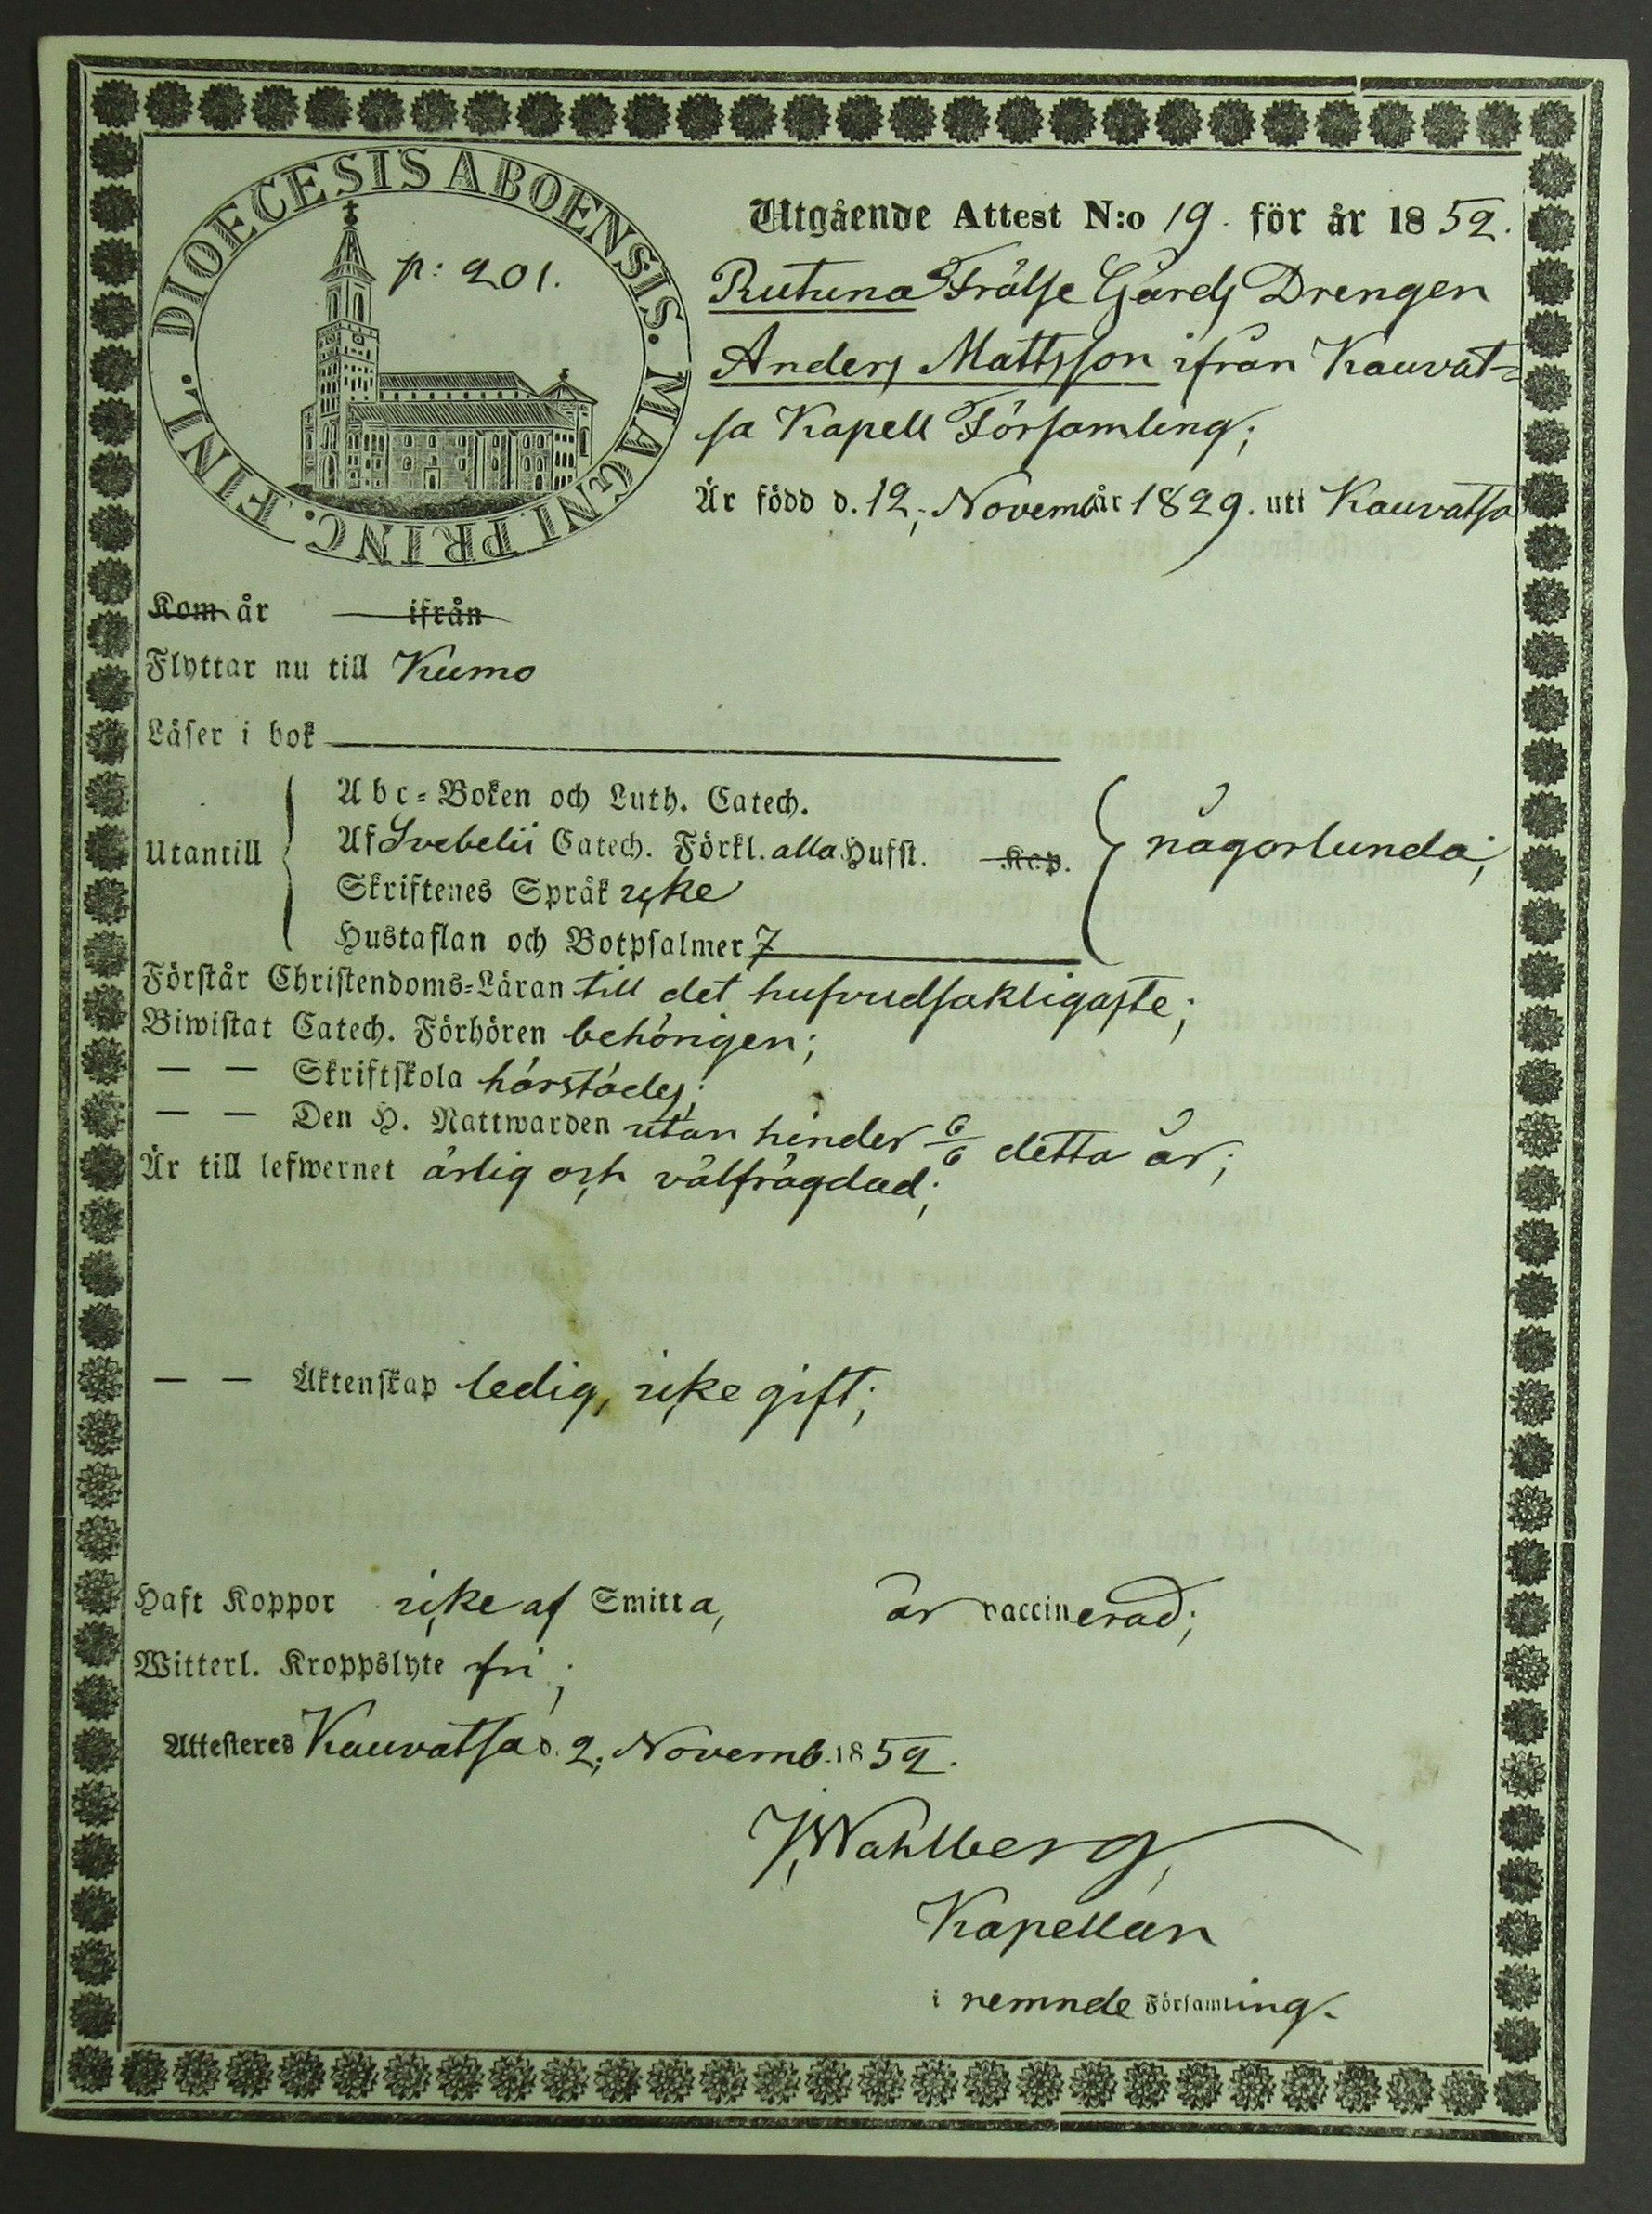 DIOECESIS ABOENSIS. MAGNI PRINC. FINL.
p: 201.
Utgående Attest N:o 19. för år 1852.
Rutuna Frälse Gårds Drengen
Anders Mattsson ifrån Kauvat-
sa Kapell Församling;
Är född d. 12, Novemb. år 1829. uti Kauvatsa
Kom år ifrån
Flyttar nu till Kumo
Läser i bok
Utantill
Abc-Boken och Luth. Catech.
Af Svebelii Catech. Förkl. alla Hufst. Kap.
Skriftenes Språk icke
Hustaflan och Botpsalmer 7
någorlunda;
Förstår Christendoms-Läran till det hufvudsakligaste;
Biwistat Catech. Förhören behörigen;
— — Skriftskola härstädes;
— — Den H. Nattwarden utan hinder 6/6 detta år;
Är till lefwernet ärlig och välfrägdad;
— — Äktenskap ledig, icke gift;
Haft Koppor icke af Smitta, är vaccinerad;
Witterl. Kroppslyte fri;
Attesteres Kauvatsa d. 2, Novemb. 1852.
J. Wahlberg,
Kapellan
i nemnde Församling.